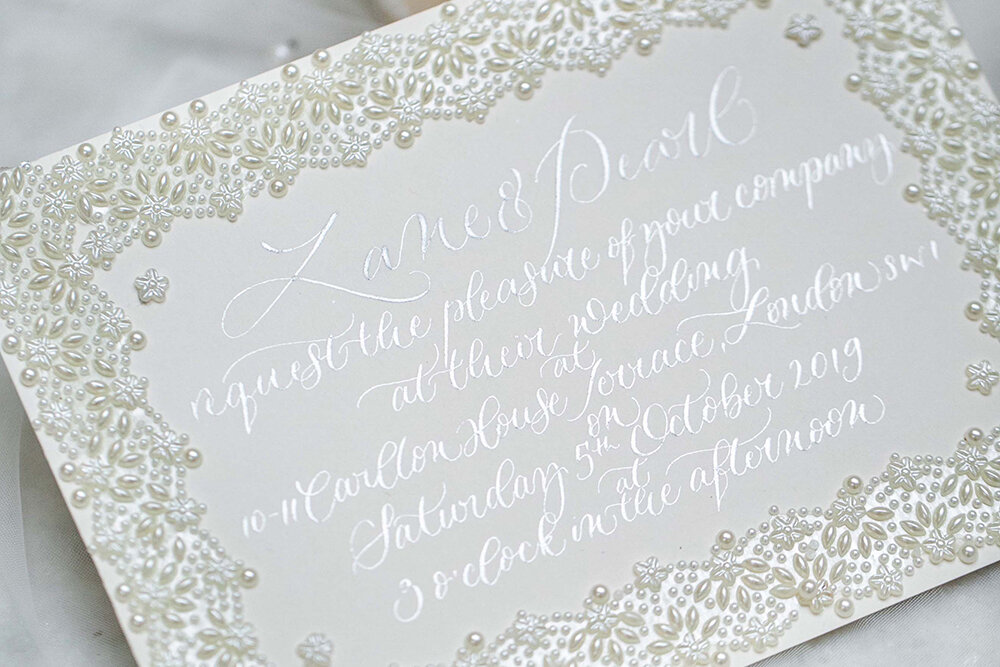 Lane & Pearl
request the pleasure of your company
at their wedding
at
10-11 Carlton House Terrace, London SW1
on
Saturday 5th October 2019
at
3 o'clock in the afternoon